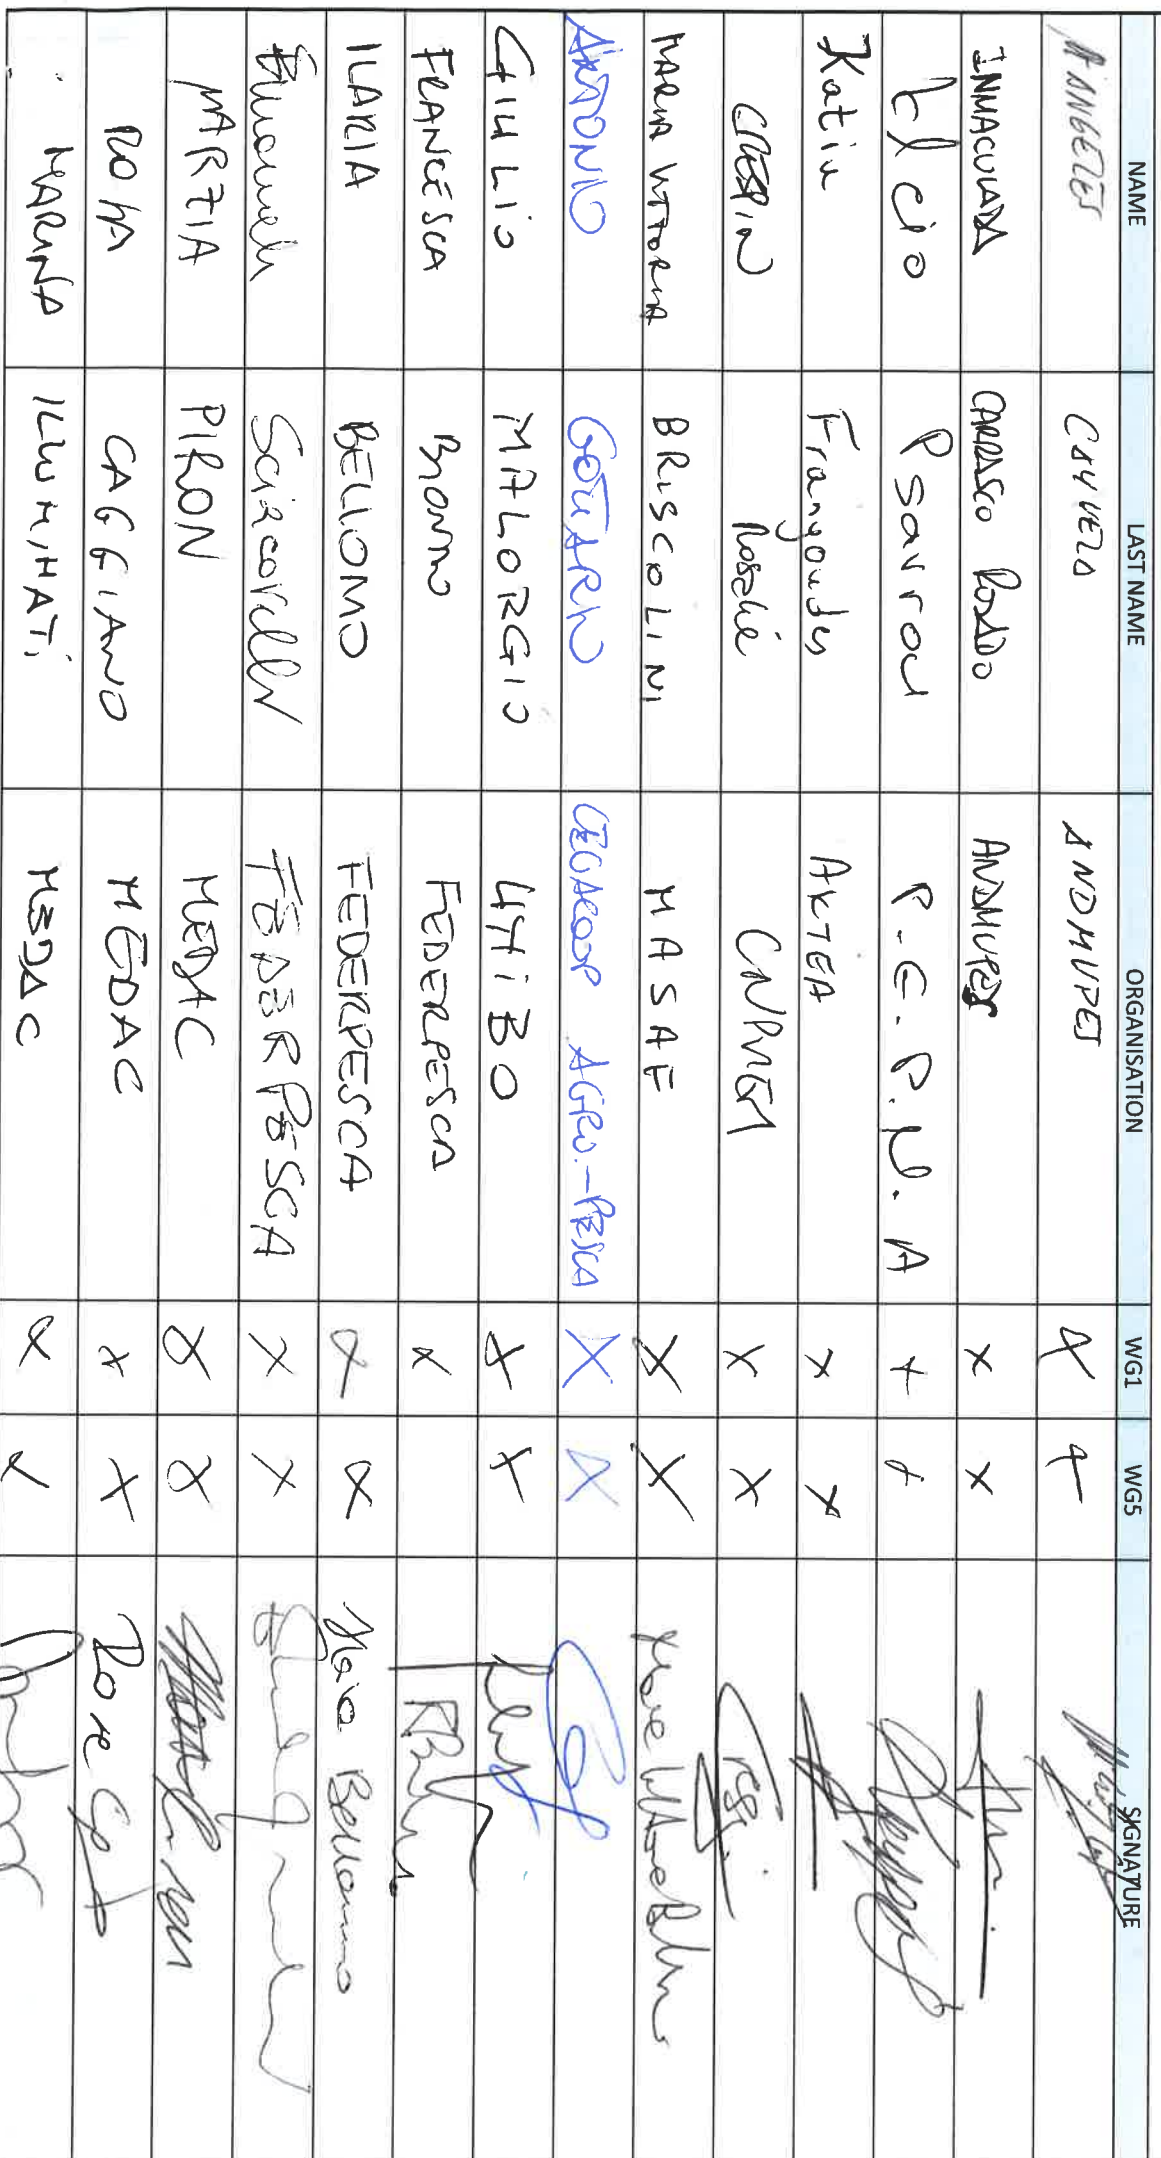 NAME LAST NAME ORGANISATION WG1 WG5 SIGNATURE
Mª ANGELES CAYUELA ANDMUPES X X
INMACULADA CARRASCO ROSADO ANDMUPES X X
Elcio Psarrou P.E.P.M.A + +
Katia Frangoudes AKTEA X X
CRESPIN Rosalie CNPMEM X X
MARIA VITTORIA BRISCOLINI MASAF X X
ANTONIO GOTTARDO LEGACOOP AGRO.-PESCA X X
GIULIO MALORGIO UNIBO X X
FRANCESCA BIONDO FEDERPESCA X
ILARIA BELLOMO FEDERPESCA X X Ilaria Bellomo
Emanuele Sciacovelli FEDERPESCA X X
MARZIA PIRON MEDAC X X
ROSA CAGGIANO MEDAC X X
MARINA ILLUMINATI MEDAC X X